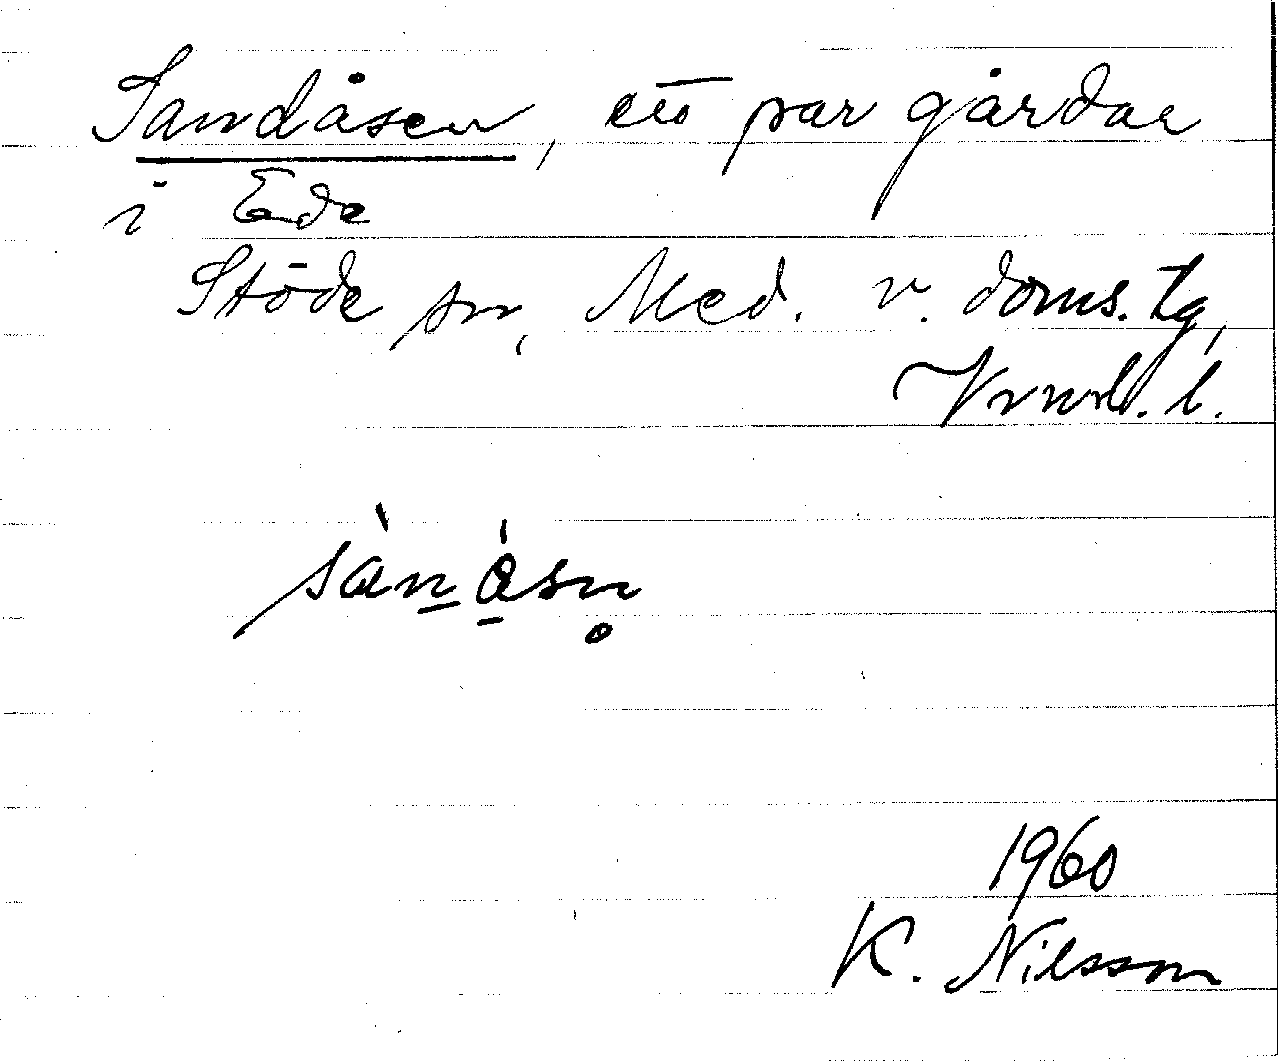 Sandåsen, ett par gårdar
i Ede
Stöde sn, Med. v. doms. tg,
Vrnrl. l.
sànåsn̥
1960
K. Nilsson